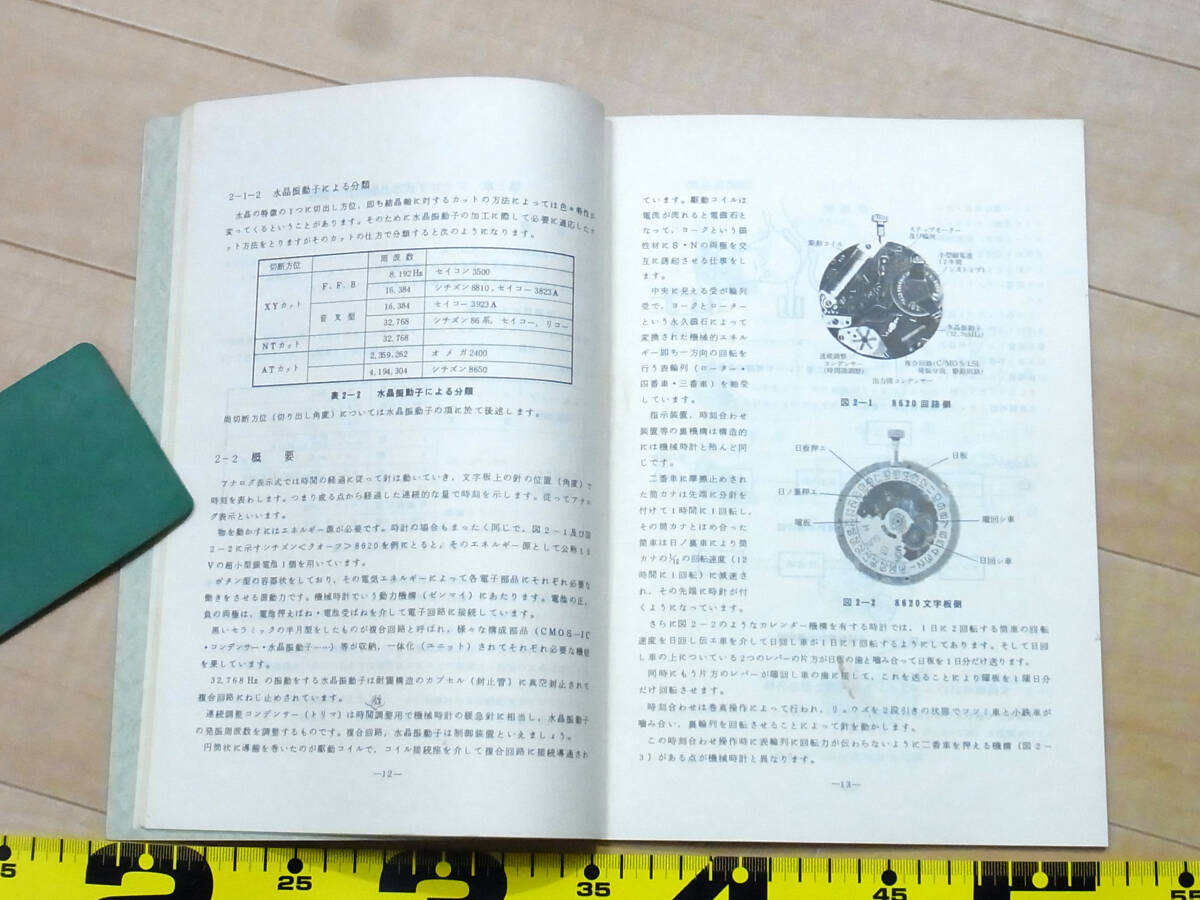 2-1-2 水晶振動子による分類
水晶の特徴の1つに切出し方位，即ち結晶軸に対するカットの方法によっては色々特性が
変ってくるということがあります。そのために水晶振動子の加工に際して必要に適応したカ
ット方法をとりますがそのカットの仕方で分類すると次のようになります。
切断方位 周波数
XYカット F．F．B 8,192Hz セイコー3500
16,384 シチズン8810，セイコー3823A
音叉型 16,384 セイコー3923A
32,768 シチズン86系，セイコー，リコー
NTカット 32,768
ATカット 2,359,262 オメガ2400
4,194,304 シチズン8650
表2-2 水晶振動子による分類
尚切断方位（切り出し角度）については水晶振動子の項に於て後述します。
2-2 概要
アナログ表示式では時間の経過に従って針は動いていき，文字板上の針の位置（角度）で
時刻を表わします。つまり或る点から経過した連続的な量で時刻を示します。従ってアナロ
グ表示といいます。
物を動かすにはエネルギー源が必要です。時計の場合もまったく同じで，図2-1及び図
2-2に示すシチズン＜クオーツ＞8620を例にとると，そのエネルギー源として公称1.5
Vの超小型銀電池1個を用いています。
ボタン型の容器状をしており，その電気エネルギーによって各電子部品にそれぞれ必要な
働きをさせる原動力です。機械時計でいう動力機構（ゼンマイ）にあたります。電池の正，
負の両極は，電池押えばね・電池受ばねを介して電子回路に接続しています。
黒いセラミックの半月型をしたものが複合回路と呼ばれ，様々な構成部品（CMOS-IC
・コンデンサー・水晶振動子……）等が収納，一体化（ユニット）されてそれぞれ必要な機能
を果しています。
32,768Hzの振動をする水晶振動子は耐震構造のカプセル（封止管）に真空封止されて
複合回路にねじ止めされています。
連続調整コンデンサー（トリマ）は時間調整用で機械時計の緩急針に相当し，水晶振動子
の発振周波数を調整するものです。複合回路，水晶振動子は制御装置といえましょう。
円筒状に導線を巻いたのが駆動コイルで，コイル接続座を介して複合回路に接続導通され
―12―
ています。駆動コイルは
電流が流れると電磁石と
なって，ヨークという磁
性材にS・Nの両極を交
互に誘起させる仕事をし
ます。
中央に見える受が輪列
受で，ヨークとローター
という永久磁石によって
変換された機械的エネル
ギー即ち一方向の回転を
行う表輪列（ローター・
四番車・三番車）を軸受
しています。
指示装置，時刻合わせ
装置等の裏機構は構造的
には機械時計と殆んど同
じです。
二番車に摩擦止めされ
た筒カナは先端に分針を
付けて1時間に1回転し，
その筒カナとほめ合った
筒車は日ノ裏車により筒
カナの1/12の回転速度（12
時間に1回転）に減速さ
れ，その先端に時針が付
くようになっています。
駆動コイル
ステップモーター
及び輪列
小型銀電池
(2年間
ノンストップ)
水晶振動子
(32,768Hz)
連続調整
コンデンサー
(時間微調整)
複合回路(C/MOS/LSI.
発振分周，駆動回路)
出力用コンデンサー
図2-1 8620回路側
日板押エ
日板
日ノ裏押エ
曜板
曜回シ車
日回シ車
図2-2 8620文字板側
さらに図2-2のようなカレンダー機構を有する時計では，1日に2回転する筒車の回転
速度を日回し伝エ車を介して日回し車が1日に1回転するようにしてあります。そして日回
し車の上についている2つのレバーの片方が日板の歯と噛み合って日板を1日分だけ送ります。
同時にもう片方のレバーが曜回し車の歯に接して，これを送ることにより曜板を1曜日分
だけ回転させます。
時刻合わせは巻真操作によって行われ，リュウズを2段引きの状態でツヅミ車と小鉄車が
噛み合い，裏輪列を回転させることによって針を動かします。
この時刻合わせ操作時に表輪列に回転力が伝わらないように二番車を押える機構（図2-
3）がある点が機械時計と異なります。
―13―
25
35
45
55